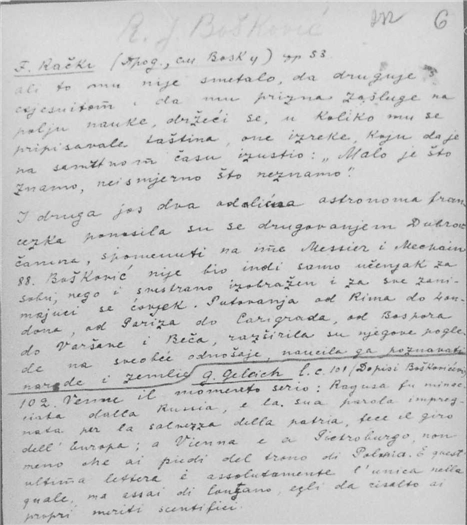 R. J. Bošković
6
F. Rački (Apog., cu Bosky) pp 83
ali to mu nije smetalo, da druguje s
exjesuitom, da mu prizna zasluge na
polju nauke, držeći se, u koliko mu se
pripisavale taština, one izreke, koju da je
na samrtnom času izustio: „Malo je što
znamo, neismjerno što neznamo".
I druga još dva odlična astronoma fran-
cezka ponosila su se drugovanjem Dubrov-
čanina, spomenuti na ime Messier i Mechain
88. Bošković nije bio indi samo učenjak za
sobu, nego i svestrano izobražen i za sve zani-
majući se čovjek. Putovanja od Rima do Lon-
dona, od Pariza do Carigrada, od Bospora
do Varšave i Beča, razširila su njegove pogle-
de na svekolike odnošaje, naučila ga poznavati
narode i zemlje G. Gelcich l. c. 101 / Dopisi Boškovićevi
102. Venne il momento serio: Ragusa fu minac-
ciata dalla Russia, e la sua parola impreg-
nata per la salvezza della patria, fece il giro
dell' Europa; a Vienna e a Pietroburgo, non
meno che ai piedi del trono di Polonia. E quest'
ultima lettera è assolutamente l'unica nella
quale, ma assai di lontano, egli dà risalto ai
propri meriti scientifici.